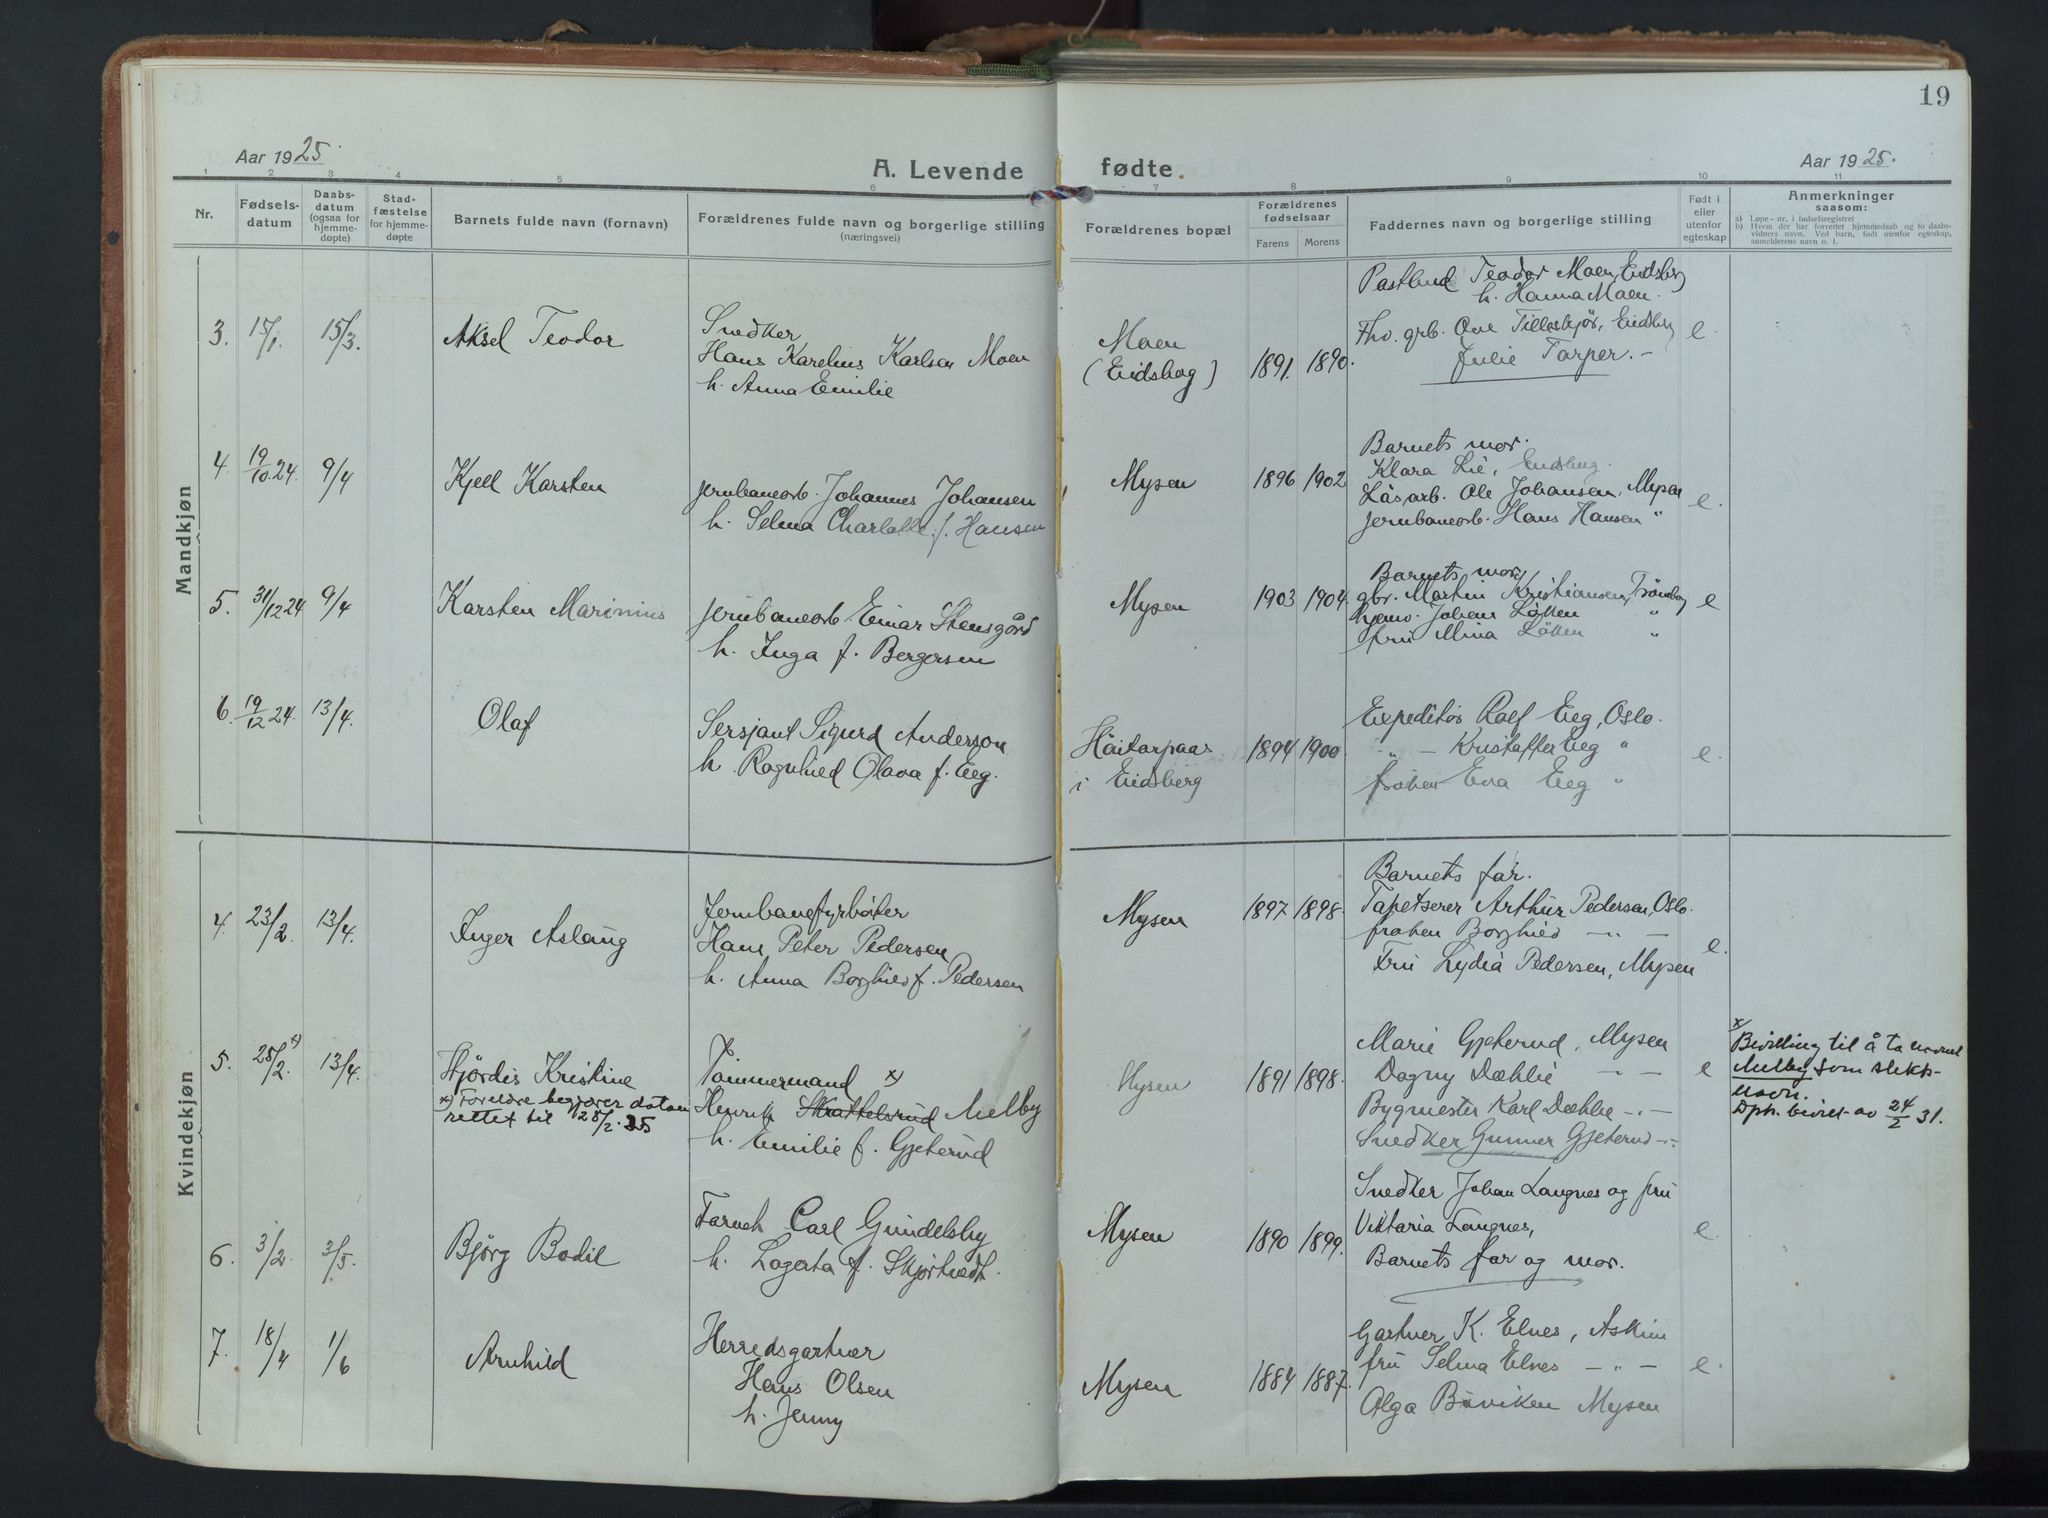 19
Aar 1925
A. Levende fødte.
Aar 1925.
1 2 3 4 5 6 7 8 9 10 11
Nr.
Fødsels-
datum
Daabs-
datum
(ogsaa for
hjemme-
døpte)
Stad-
fæstelse
for hjemme-
døpte
Barnets fulde navn (fornavn)
Forældrenes fulde navn og borgerlige stilling
(næringsvei)
Forældrenes bopæl
Forældrenes
fødselsaar
Farens Morens
Faddernes navn og borgerlige stilling
Født i
eller
utenfor
egteskap
Anmerkninger
saasom:
a) Løpe-nr. i fødselsregistret
b) Hvem der har forrettet hjemmedaab og to daabs-
vidners navn. Ved barn, født utenfor egteskap,
anmelderens navn o. l.
Mandkjøn
3. 15/1. 15/3. Aksel Teodor
Snedker
Hans Karelius Karlsen Moen
h. Anna Emilie
Moen
(Eidsberg)
1891. 1890.
Postbud Teodor Moen, Eidsberg
h. Hanna Moen.
Fhv. grb. Ove Tilleskjør, Eidsberg
Julie Torper. –
e.
4. 19/10 24. 9/4 Kjell Karsten
Jernbanearb. Johannes Johansen
h. Selma Charlotte f. Hansen
Mysen
1896 1902
Barnets mor.
Klara Lie, Eidsberg.
Løsarb. Ole Johansen, Mysen
Jernbanearb. Hans Hansen "
e.
5. 31/12 24 9/4 Karsten Marinius
Jernbanearb. Einar Stensgård
h. Inga f. Bergersen
Mysen
1903 1904.
Barnets mor
gbr. Martin Kristiansen, Trømborg
Johans Løken "
fru Mina Løken "
e
6. 19/12 24. 13/4. Olaf
Sersjant Sigurd Anderson
h. Ragnhild Olava f. Eeg.
Høitorpaas
i Eidsberg
1894 1900.
Expeditør Rolf Eeg, Oslo.
" – Kristoffer Eeg "
frøken Eva Eeg "
e.
Kvindekjøn
4. 23/2. 13/4. Inger Aslaug
Jernbanefyrbøter
Hans Peter Pedersen
h. Anna Borghild f. Pedersen
Mysen
1897 1898.
Barnets far.
Tapetserer Arthur Pedersen, Oslo.
frøken Borghild – " –
Fru Lydia Pedersen, Mysen
e.
5. 25/2. x) 13/4. Hjørdis Kristine
x) Foreldre begjærer datoen
rettet til 28/2. 25
Tømmermand x)
Henrik Skattelsrud Melby
h. Emilie f. Gjeterud
Mysen
1891 1898.
Marie Gjeterud, Mysen
Dagny Dæhlie – –
Bygmester Karl Dæhlie – " –
Snedker Gunner Gjeterud – " –
e
x/
Bevilling til å ta navnet
Melby som slekts-
navn.
Dph. bevilt. av 24/2 31.
6. 3/2. 3/5. Bjørg Bodil
Carl Gundelsby
h. Lagerta f. Skjørtvedt.
Mysen
1890 1899.
Snedker Johan Langnes og fru
Viktoria Langnes,
Barnets far og mor.
e.
7. 18/4 1/6 Arnhild
Herredsgartner
Hans Olsen
h. Jenny
Mysen
1884 1887.
Gartner K. Elnes, Askim
fru Selma Elnes – " –
Olga Buviken Mysen
e.